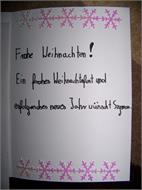 Frohe Weihnachten!
Ein frohes Weihnachtsfest und
erfolgreiches neues Jahr wünscht